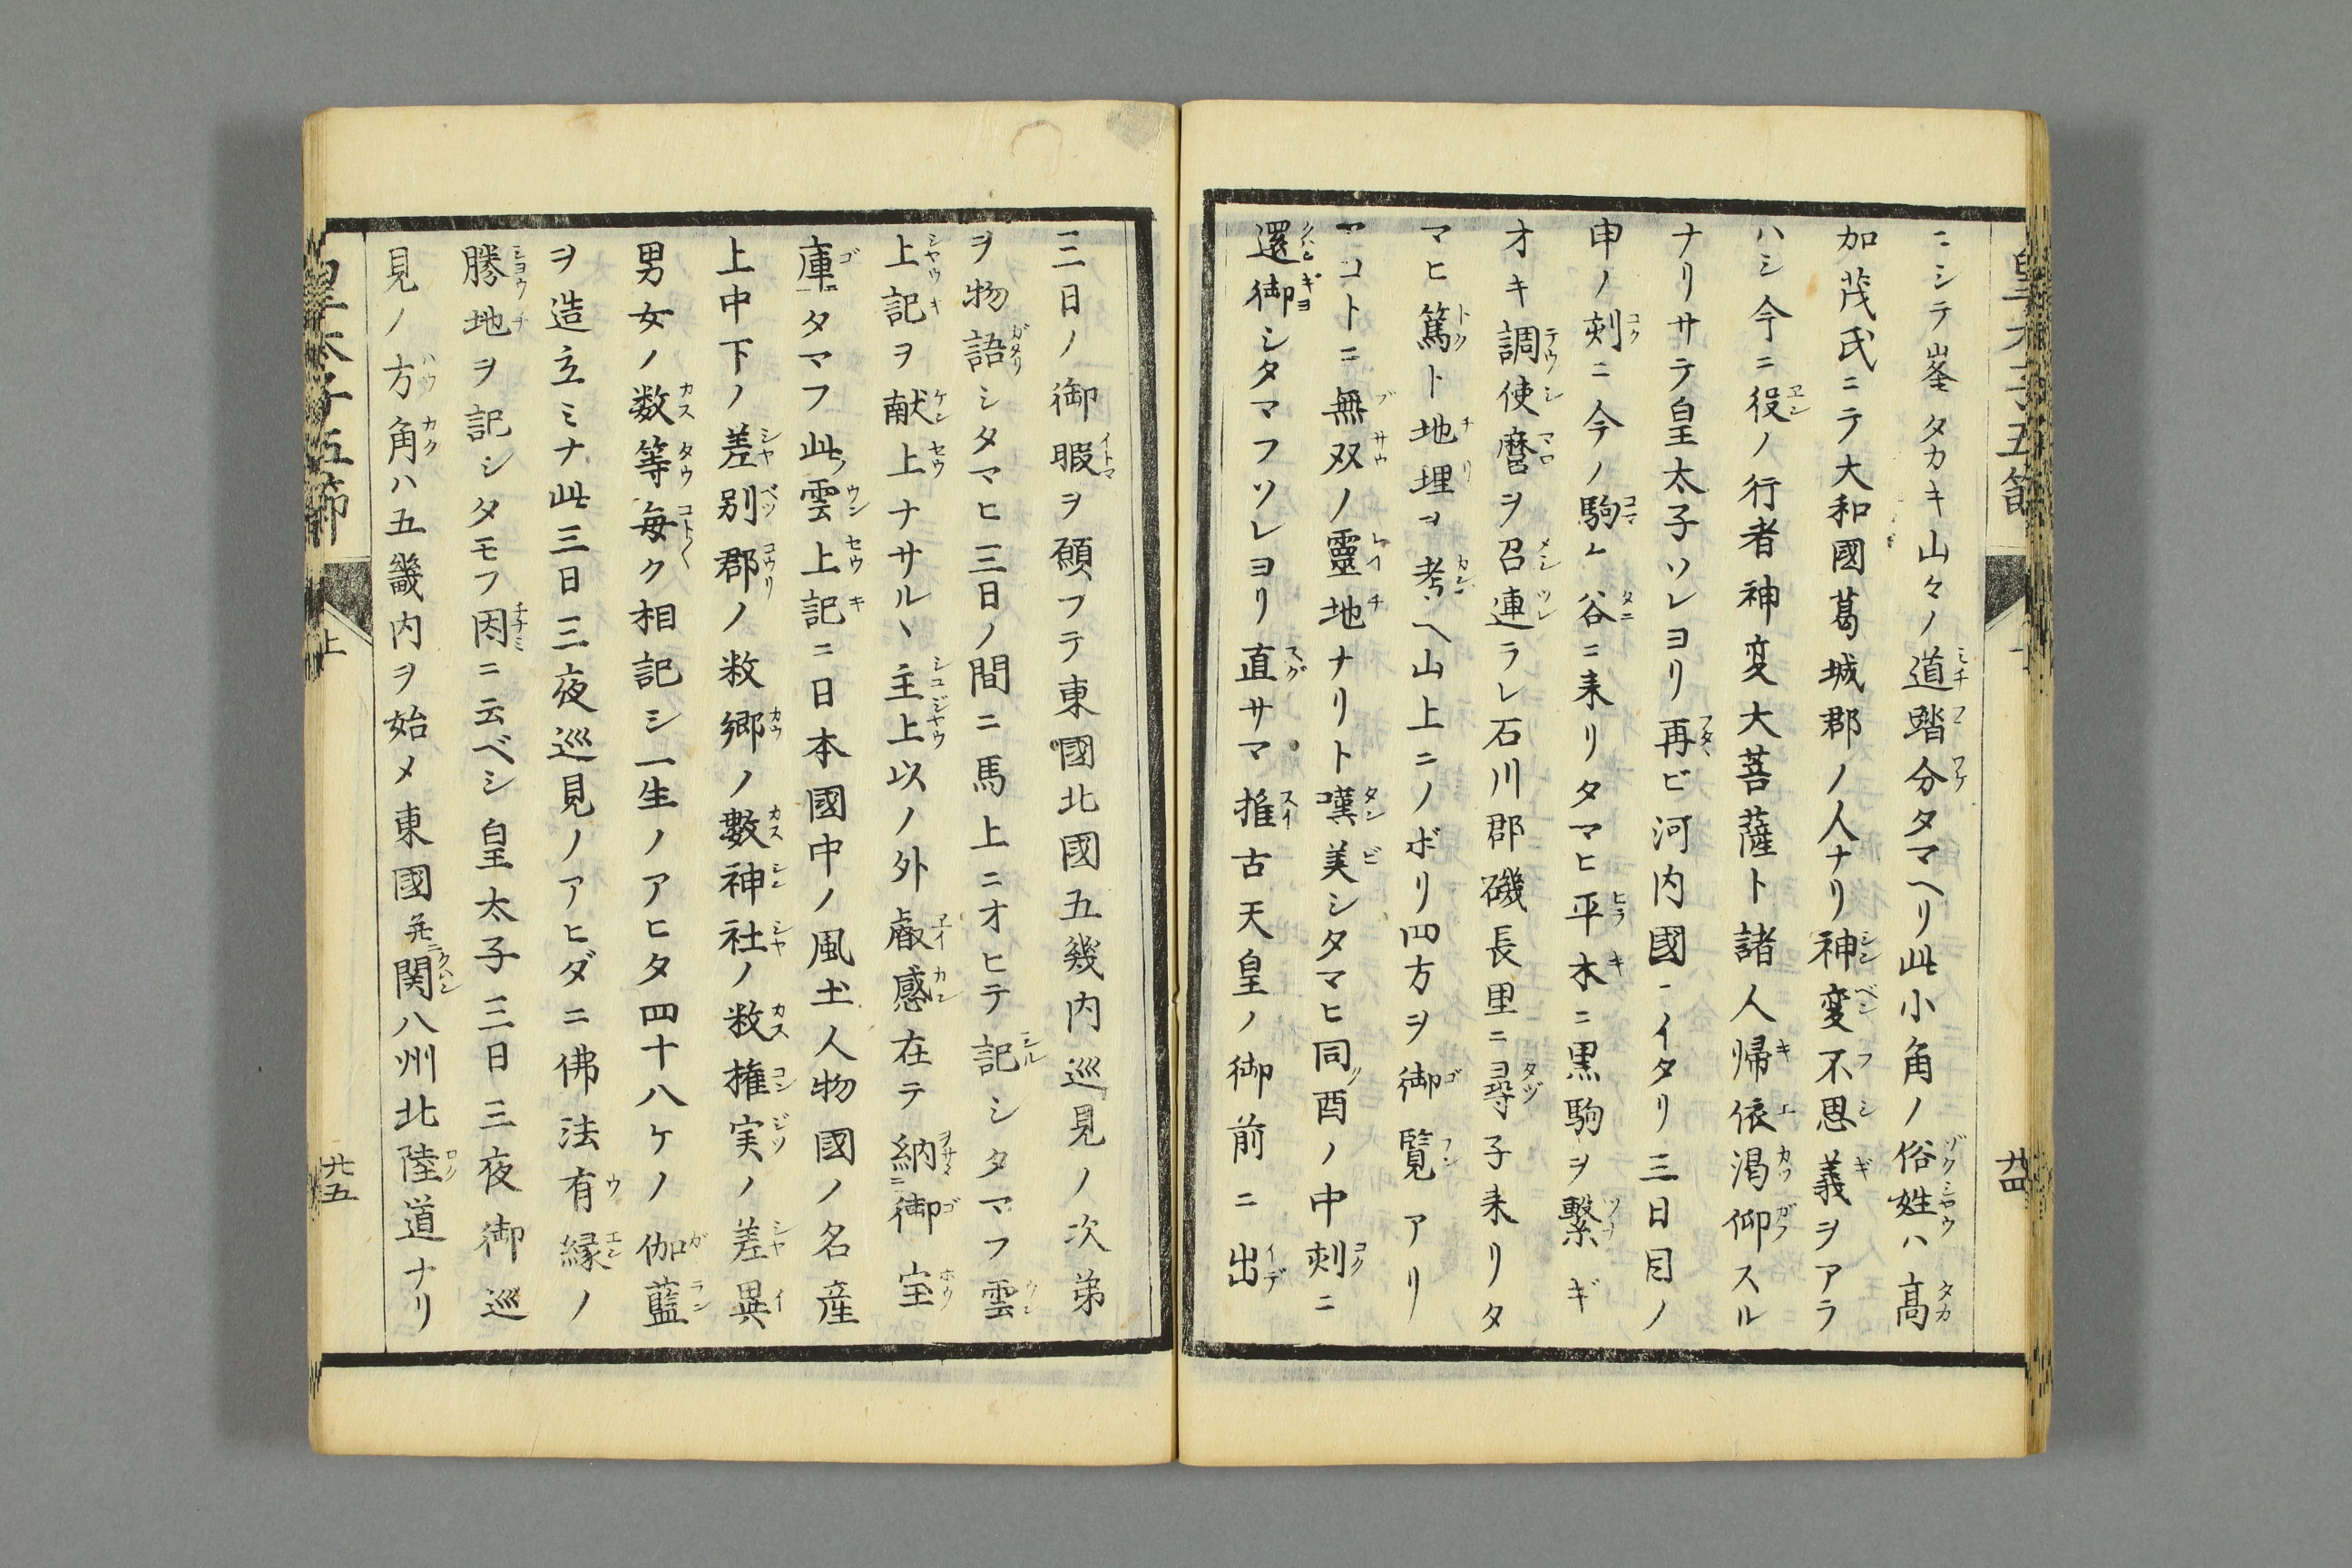 ニシテ峯タカキ山々ノ道踏分タマヘリ此小角ノ俗姓ハ高
加茂氏ニテ大和國葛城郡ノ人ナリ神変不思義ヲアラ
ハシ今ニ役ノ行者神変大菩薩ト諸人帰依渇仰スル
ナリサテ皇太子ソレヨリ再ビ河内國ニイタリ三日目ノ
申ノ刻ニ今ノ駒ケ谷ニ来リタマヒ平木ニ黒駒ヲ繋ギ
オキ調使麿ヲ召連ラレ石川郡磯長里ニ尋子来リタ
マヒ篤ト地埋ヲ考ヘ山上ニノボリ四方ヲ御覧アリ
マコトニ無双ノ靈地ナリト嘆美シタマヒ同酉ノ中刻ニ
還御シタマフソレヨリ直サマ推古天皇ノ御前ニ出
皇太子五節 上 廿四
三日ノ御暇ヲ願フテ東國北國五幾内巡見ノ次弟
ヲ物語シタマヒ三日ノ間ニ馬上ニオヒテ記シタマフ雲
上記ヲ献上ナサルヽ主上以ノ外叡感在テ納御宝
庫タマフ此雲上記ニ日本國中ノ風土人物國ノ名産
上中下ノ差別郡ノ数郷ノ數神社ノ数権実ノ差異
男女ノ数等毎ク相記シ一生ノアヒタ四十八ケノ伽藍
ヲ造立ミナ此三日三夜巡見ノアヒダニ佛法有縁ノ
勝地ヲ記シタモフ因ニ云ベシ皇太子三日三夜御巡
見ノ方角ハ五畿内ヲ始メ東國并ニ関八州北陸道ナリ
皇太子五節 上 廿五